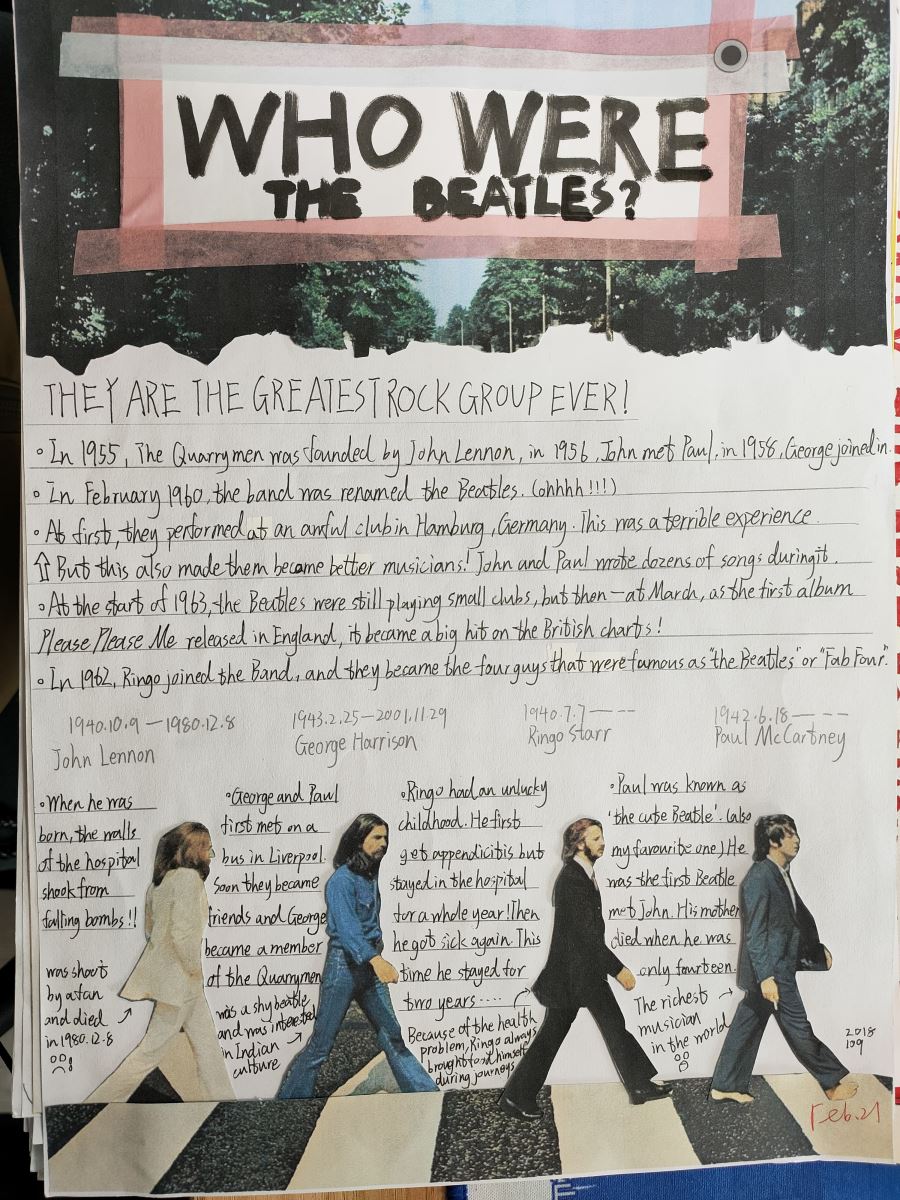 WHO WERE
THE BEATLES?
THEY ARE THE GREATEST ROCK GROUP EVER!
•In 1955, The Quarrymen was founded by John Lennon, in 1956, John met Paul, in 1958, George joined in.
•In February 1960, the band was renamed the Beatles. (ohhhh!!!)
•At first, they performed at an awful club in Hamburg, Germany. This was a terrible experience.
⇧But this also made them become better musicians! John and Paul wrote dozens of songs during it.
•At the start of 1963, the Beatles were still playing small clubs, but then—at March, as the first album
Please Please Me released in England, it became a big hit on the British charts!
•In 1962, Ringo joined the Band, and they became the four guys that were famous as "the Beatles" or "Fab Four".
1940.10.9—1980.12.8
John Lennon
1943.2.25—2001.11.29
George Harrison
1940.7.7————
Ringo Starr
1942.6.18————
Paul McCartney
•When he was
born, the walls
of the hospital
shook from
falling bombs!!
was shoot
by a fan
and died
in 1980.12.8
•George and Paul
first met on a
bus in Liverpool.
Soon they became
friends and George
became a member
of the Quarrymen
was a shy beatle
and was interested
in Indian
culture
•Ringo had an unlucky
childhood. He first
get appendicitis but
stayed in the hospital
for a whole year! Then
he got sick again. This
time he stayed for
two years····
Because of the health
problem, Ringo always
brought food himself
during journeys
•Paul was known as
'the cute Beatle'. (also
my favourite one) He
was the first Beatle
met John. His mother
died when he was
only fourteen.
The richest
musician
in the world
2018
109
Feb.21